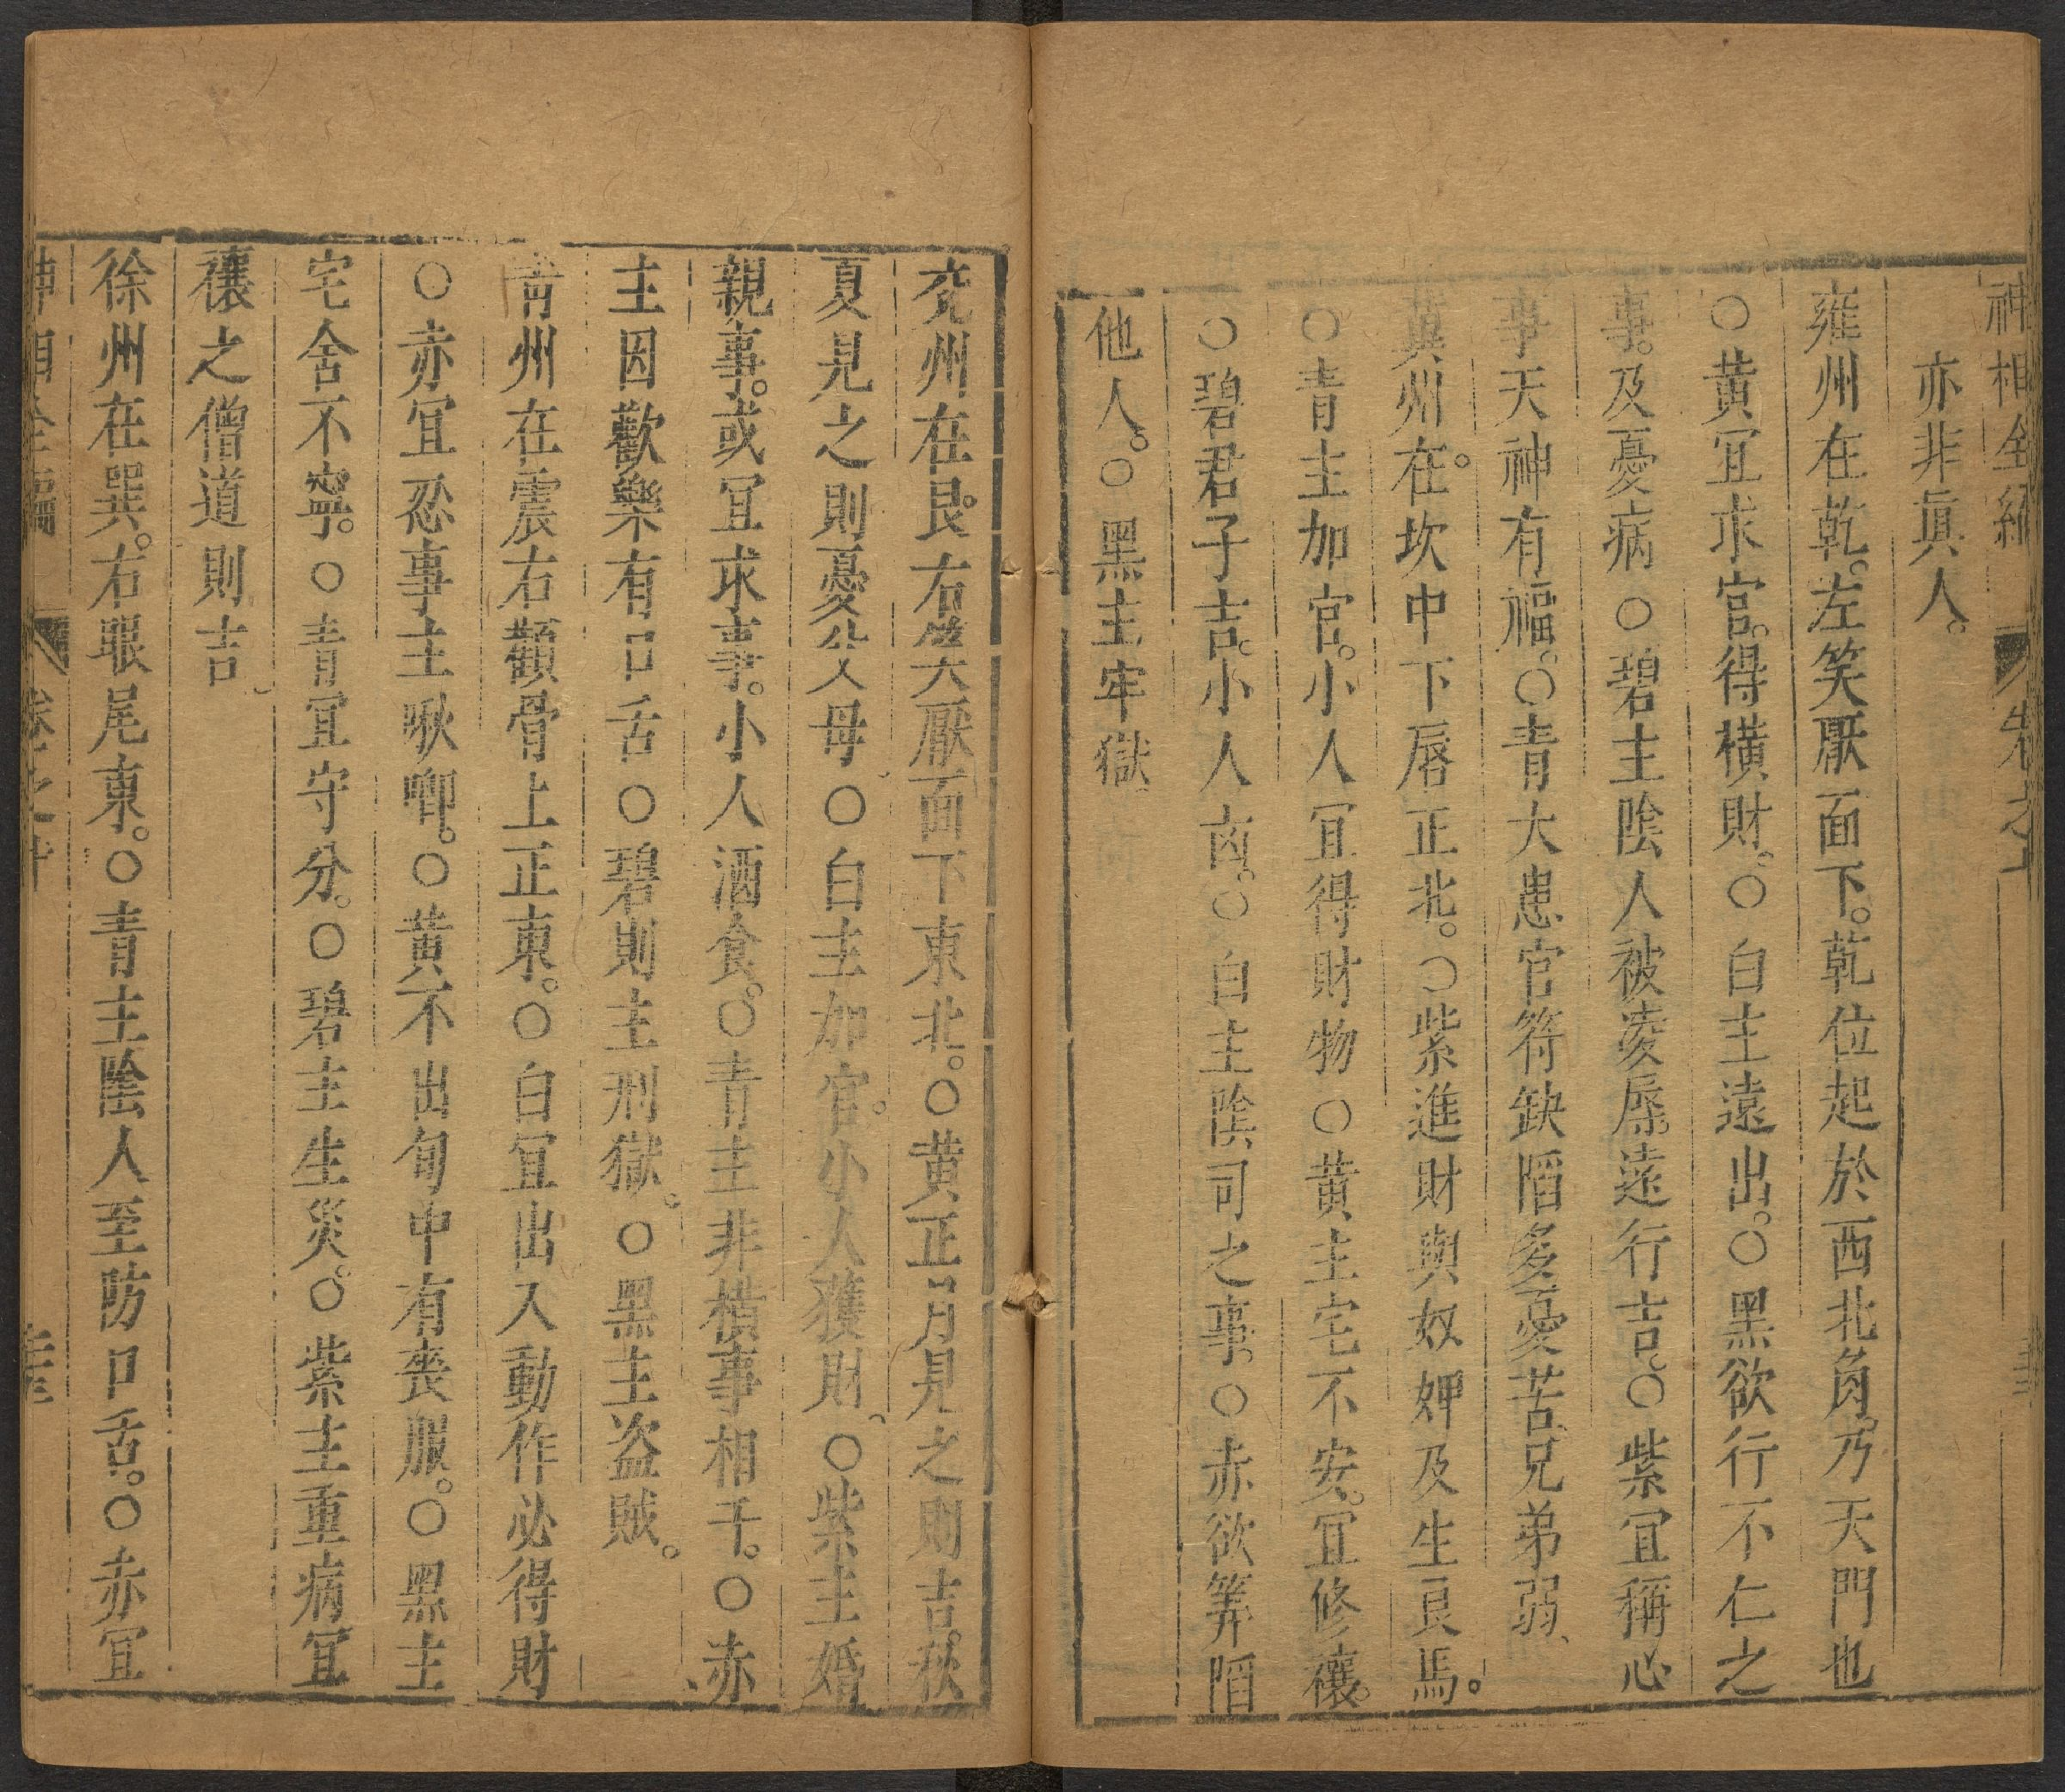 神相全編 卷之十
亦非眞人。
雍州在乾。左笑厭面下。乾位起於西北角。乃天門也
○黃宜求官。得橫財。○白主遠出。○黑欲行不仁之
事。及憂病○碧主陰人被凌辱。遠行吉。○紫宜稱心
事天神有福。○青大患官符缺陷多憂苦。兄弟弱、
冀州在。坎中下唇正北。○紫進財與奴婢及生良馬。
○青主加官。小人宜得財物○黃主宅不安。宜修禳。
○碧君子吉。小人凶。○白主陰司之事。○赤欲筭陷
他人。○黑主牢獄
兖州在艮。右笑厭面下東北。○黃正月見之則吉。秋
夏見之則憂父母○白主加官。小人獲財。○紫主婚
親事。或宜求事。小人酒食。○青主非橫事相干。○赤
主因歡樂有口舌○碧則主刑獄。○黑主盜賊。
靑州在震右顴骨上正東。○白宜出入動作必得財
○赤宜忍事主啾唧。○黃不出旬中有喪服。○黑主
宅舍不寧。○青宜守分。○碧主生災。○紫主重病宜
禳之僧道則吉
徐州在巽。右眼尾東。○青主陰人至防口舌。○赤宜
神相全編 卷之十